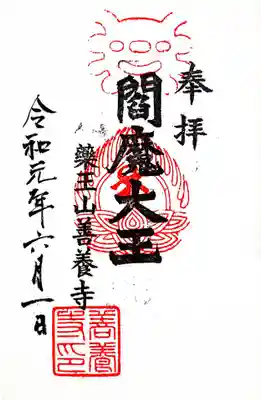 奉拝
閻魔大王
薬王山善養寺
令和元年六月一日
善養寺印